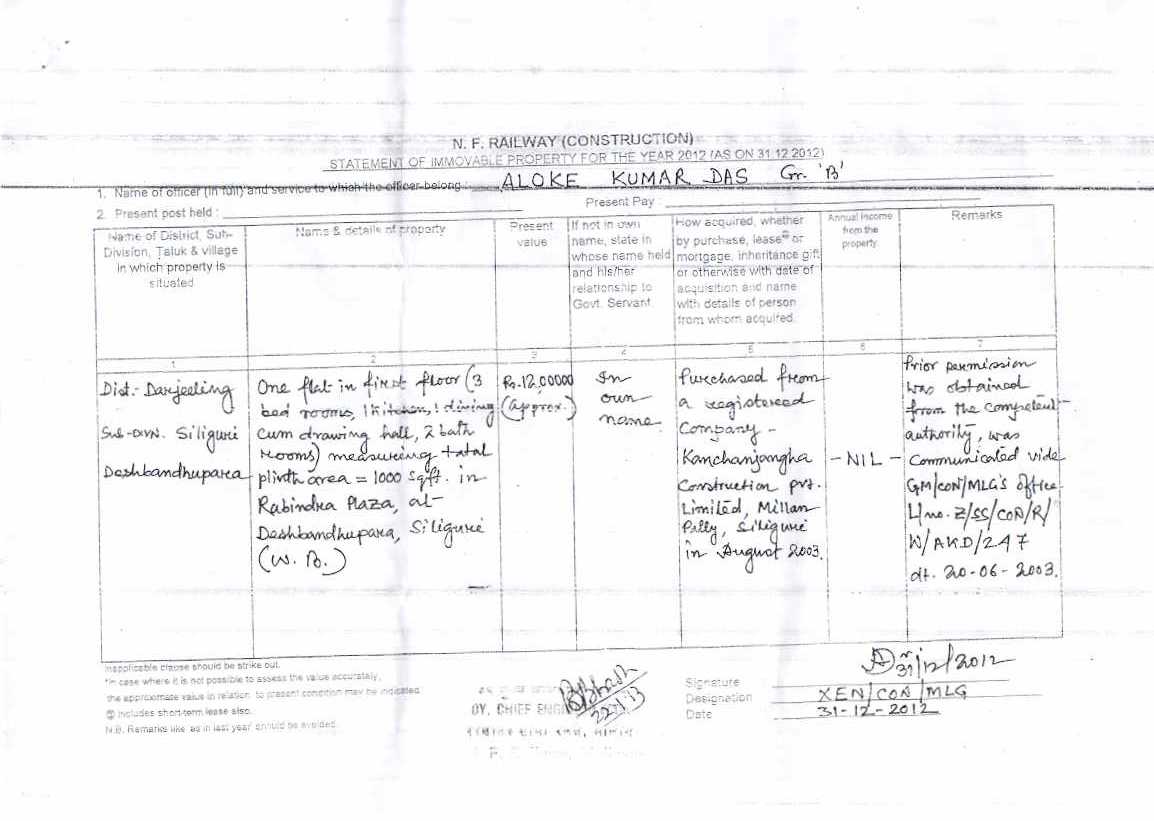 N. F. RAILWAY (CONSTRUCTION)
STATEMENT OF IMMOVABLE PROPERTY FOR THE YEAR 2012 (AS ON 31.12.2012)
1. Name of officer (in full) and service to which the officer belong : ALOKE KUMAR DAS Gr. 'B'
2. Present post held : Present Pay :
Name of District, Sub-
Division, Taluk & village
in which property is
situated
Name & details of property
Present
value
If not in own
name, state in
whose name held
and his/her
relationship to
Govt. Servant.
How acquired, whether
by purchase, lease@ or
mortgage, inheritance gift
or otherwise with date of
acquisition and name
with details of person
from whom acquired.
Annual Income
from the
property
Remarks
1 2 3 4 5 6 7
Dist.- Darjeeling
Sub-DIVN. Siliguri
Deshbandhupara
One flat in first floor (3
bed rooms, 1 kitchen, 1 dining
cum drawing hall, 2 bath
rooms) measuring total
plinth area = 1000 sqft. in
Rabindra Plaza, at-
Deshbandhupara, Siliguri
(W. B.)
Rs. 12,00000
(approx.)
In
own
name.
Purchased from
a registered
Company -
Kanchanjangha
Construction pvt.
Limited, Millan
Pally, Siliguri
in August 2003.
- NIL -
Prior permission
was obtained
from the competent
authority, was
Communicated vide
GM/CON/MLG's office
L/no. Z/SS/CON/R/
W/AKD/247
dt. 20-06-2003.
Inapplicable clause should be strike out.
*In case where it is not possible to assess the value accurately,
the approximate value in relation to present condition may be indicated.
@ Includes short-term lease also.
N.B. Remarks like as in last year should be avoided.
22.1.13
DY. CHIEF ENG
31/12/2012
Signature
Designation XEN/CON/MLG
Date 31-12-2012